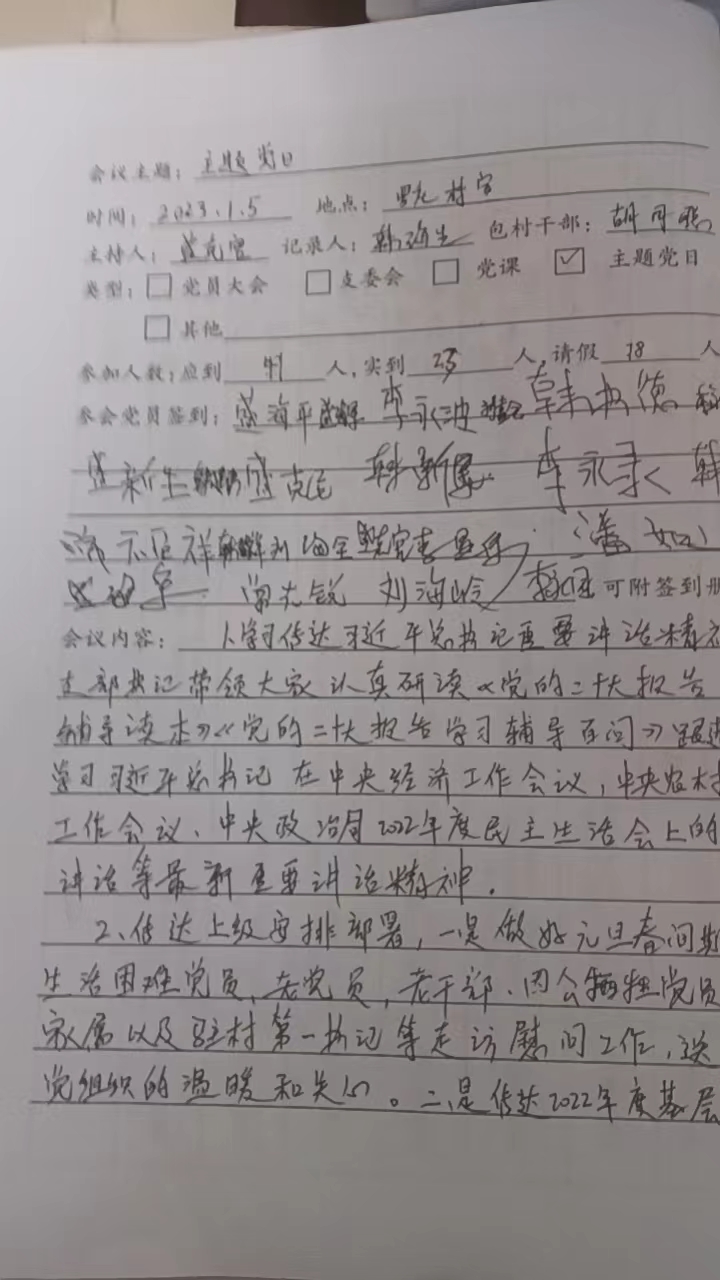 会议主题：主题党日
时间：2023.1.5 地点： 村室
主持人： 记录人： 包村干部：胡
类型：□党员大会 □支委会 □党课 ☑主题党日
□其他
参加人数：应到 41 人，实到 23 人，请假 18 人
参会党员签到：盛海平 李永波
盛新生 盛克 韩新 李永录 韩
祥 刘海全 潘
刘海岭 可附签到册
会议内容：1、学习传达习近平总书记重要讲话精
支部书记带领大家认真研读《党的二十大报告
辅导读本》《党的二十大报告学习辅导百问》跟进
学习习近平总书记在中央经济工作会议，中央农村
工作会议、中央政治局2022年度民主生活会上的
讲话等最新重要讲话精神。
2、传达上级安排部署，一是做好元旦春间期
生活困难党员、老党员，老干部、因公牺牲党员
家属以及驻村第一书记等走访慰问工作，送
党组织的温暖和关心。二是传达2022年度基层